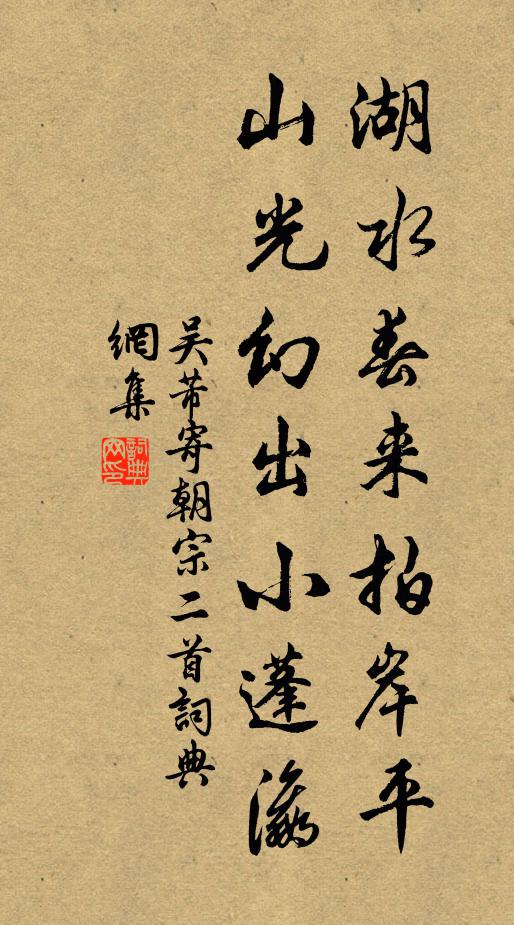 湖水春来拍岸平
山光幻出小蓬瀛
吴芾寄朝宗二首詞典
網集
詞典
网印